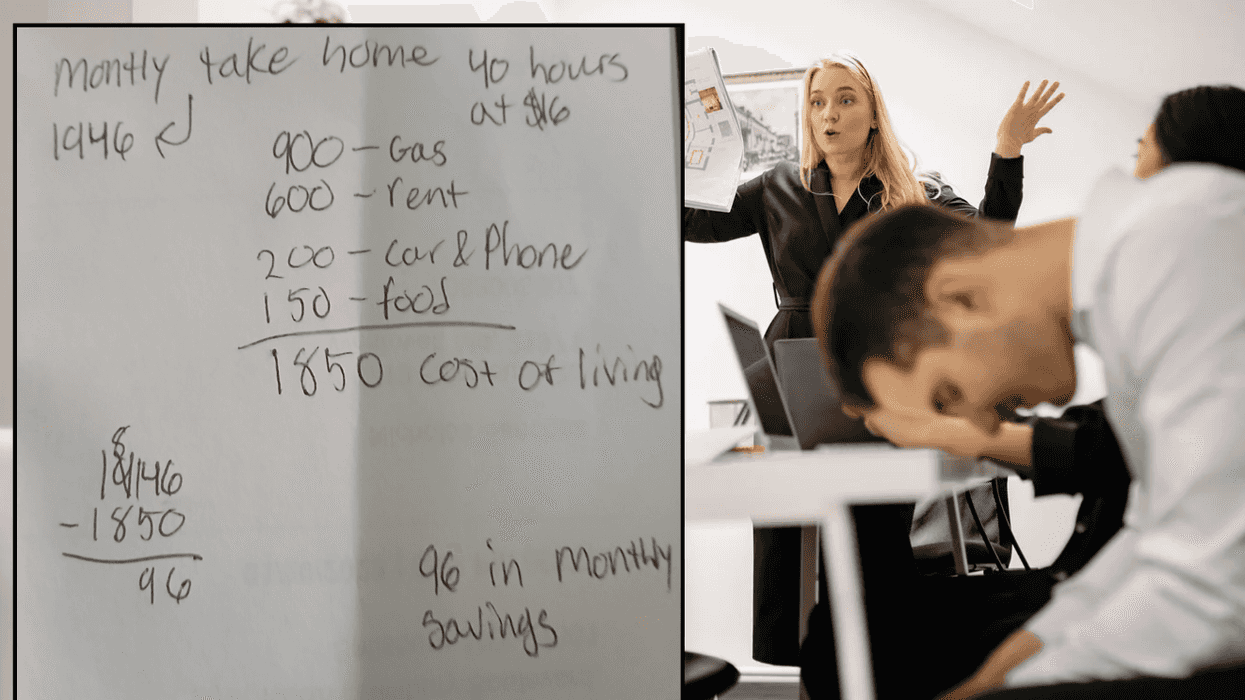 montly take home
40 hours
at $16
1946
900 - Gas
600 - rent
200 - Car & Phone
150 - food
1850 cost of living
8
1946
-1850
96
96 in monthly
savings